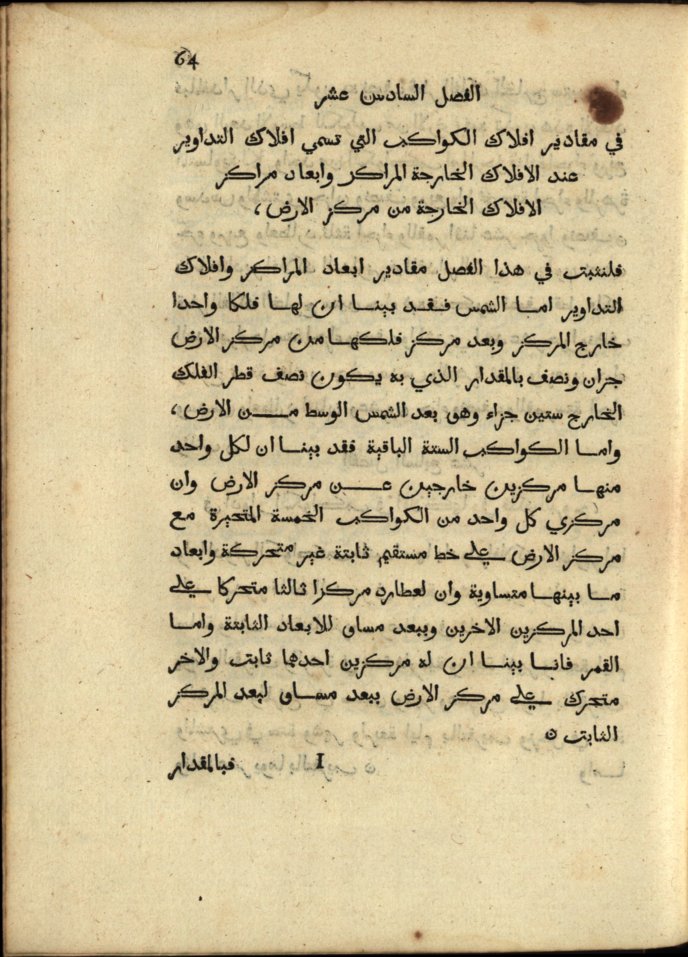 64
الفصل السادس عشر
في مقادير افلاك الكواكب التي تسمي افلاك التداوير
عند الافلاك الخارجة المراكز وابعاد مراكز
الافلاك الخارجة من مركز الارض ،
فلنثبت في هذا الفصل مقادير ابعاد المراكز وافلاك
التداوير اما الشمس فقد بينا ان لها فلكا واحدا
خارج المركز وبعد مركز فلكها من مركز الارض
جزان ونصف بالمقدار الذي به يكون نصف قطر الفلك
الخارج ستين جزاء وهو بعد الشمس الوسط من الارض ،
واما الكواكب الستة الباقية فقد بينا ان لكل واحد
منها مركزين خارجين عن مركز الارض وان
مركزي كل واحد من الكواكب الخمسة المتحيرة مع
مركز الارض علي خط مستقيم ثابتة غير متحركة وابعاد
ما بينها متساوية وان لعطارد مركزا ثالثا متحركا علي
احد المركزين الاخرين وببعد مساو للابعاد الثابتة واما
القمر فانا بينا ان له مركزين احدها ثابت والاخر
متحرك علي مركز الارض ببعد مساو لبعد المركز
الثابت ه
I فبالمقدار